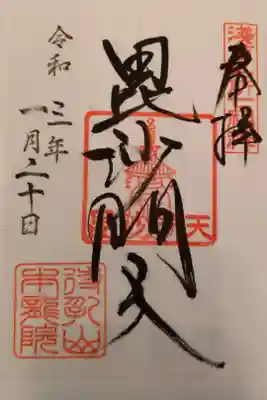 奉拝
毘沙門天
令和三年
一月二十日
待乳山
本龍院